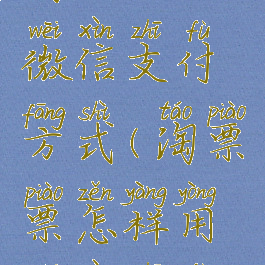 wēi xìn zhī fù
微信支付
fāng shì táo piào
方式(淘票
piào zěn yàng yòng
票怎样用